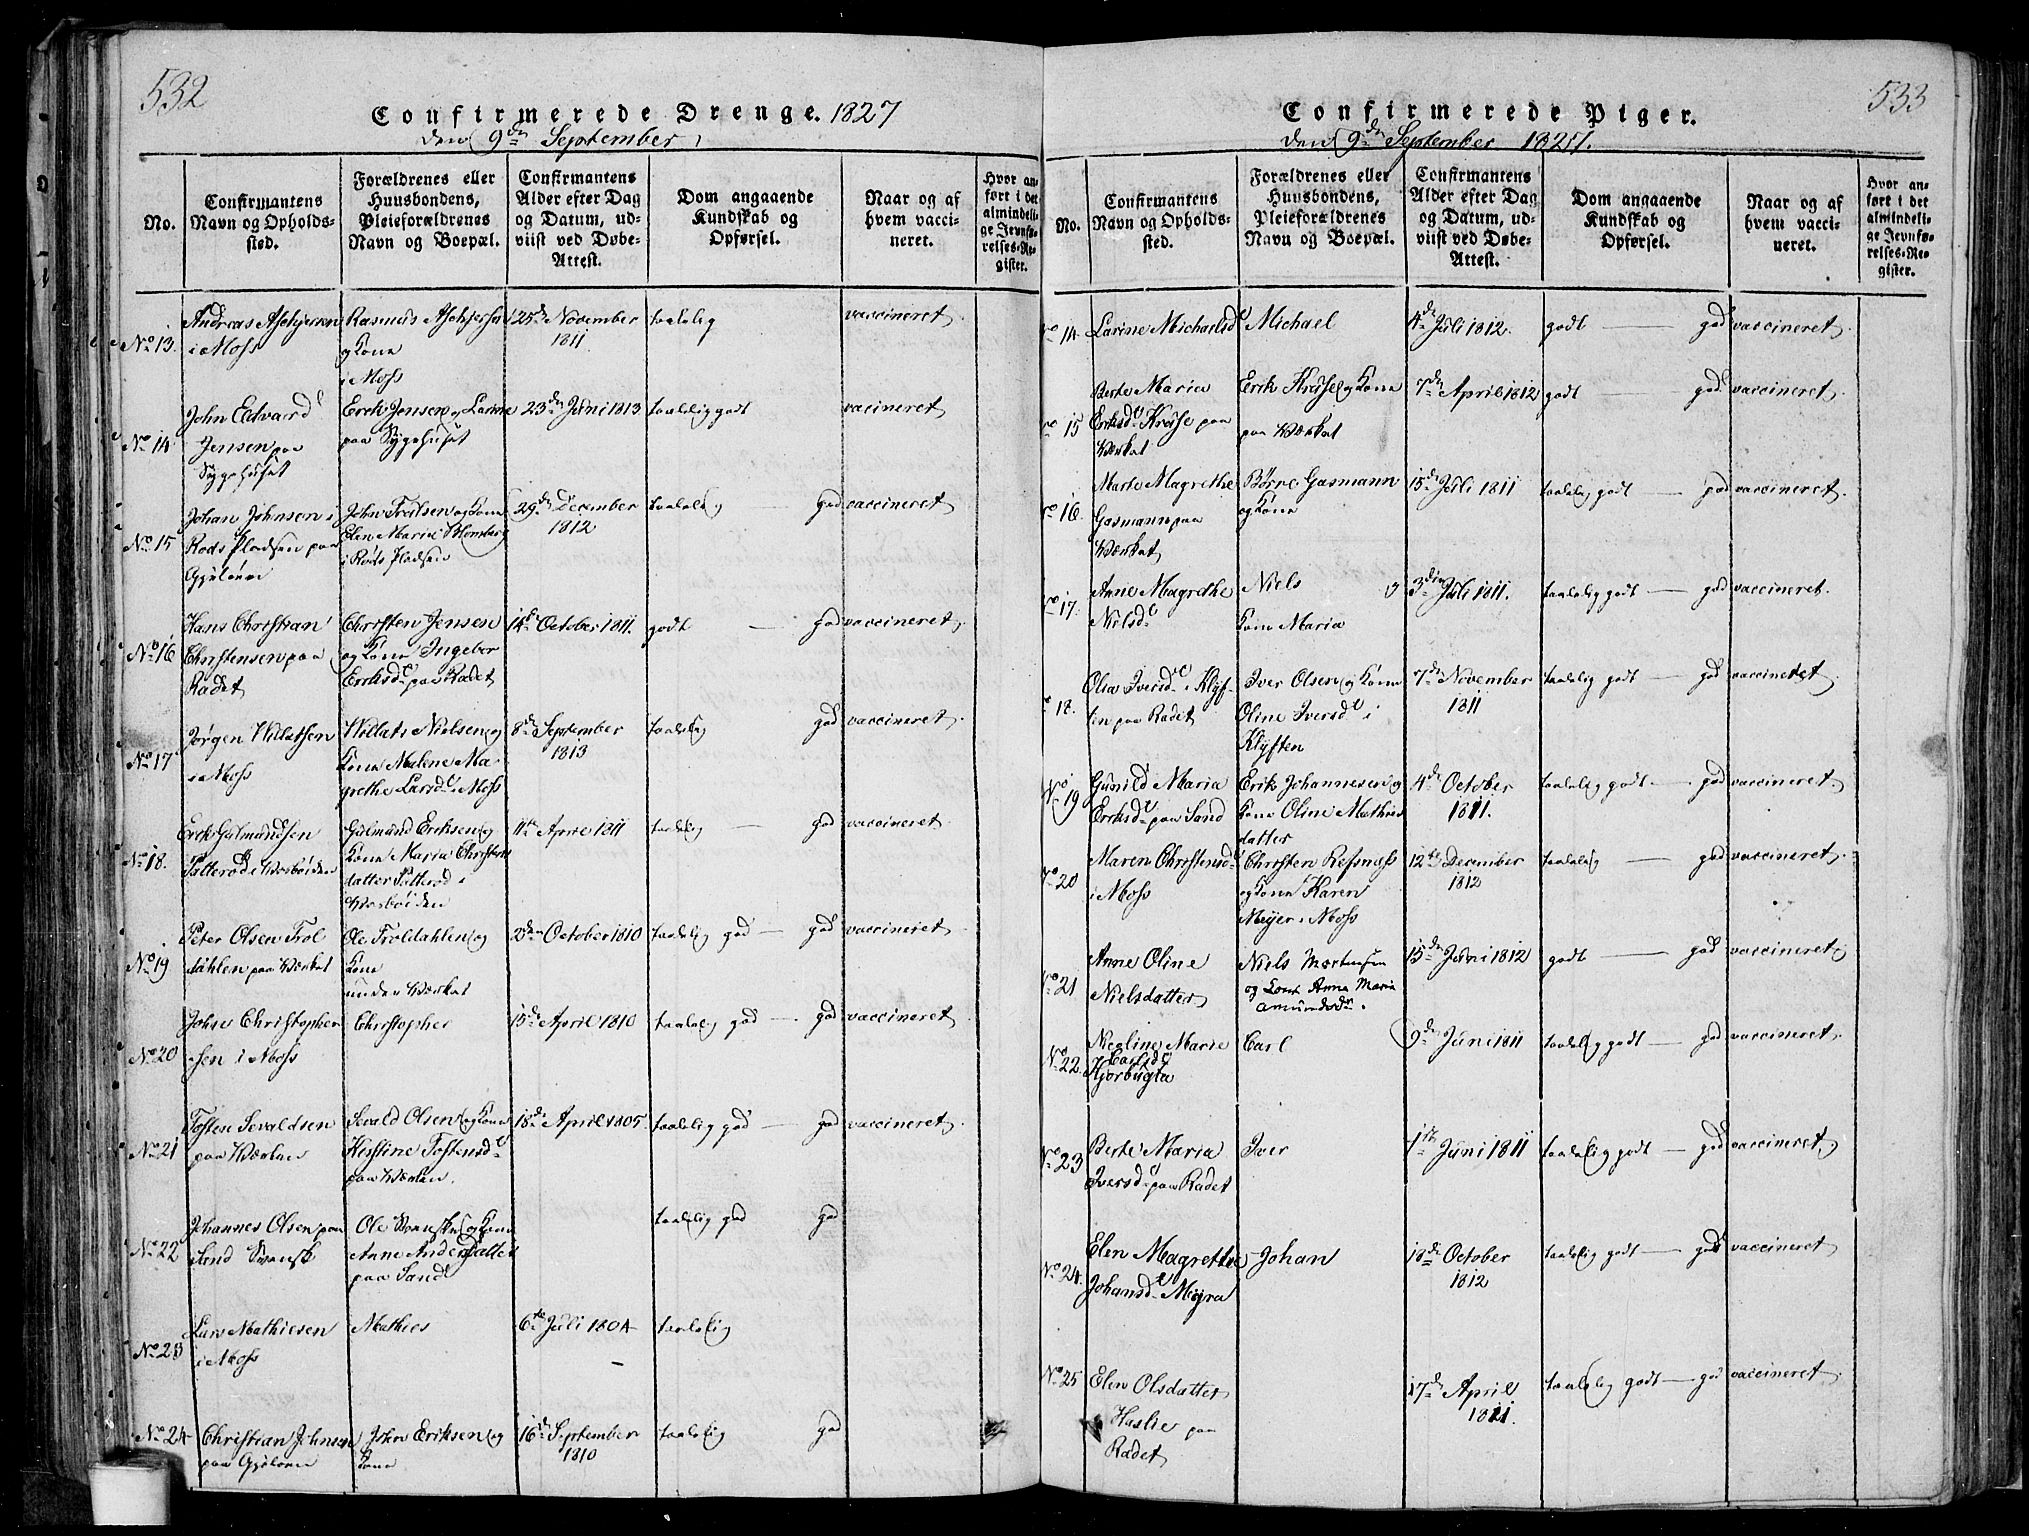 532
Confirmerede Drenge. 1827
den 9de September
No.
Confirmantens Navn og Opholdssted.
Forældrenes eller Huusbondens, Pleieforældrenes Navn og Boepæl.
Confirmantens Alder efter Dag og Datum, udviist ved Døbe-Attest.
Dom angaaende Kundskab og Opførsel.
Naar og af hvem vaccineret.
Hvor anført i det almindelige Jevnførelses-Register.
No 13. Andreas i Moss
Rasmus og Kone i Moss
25de November 1811
taalelig
vaccineret
No 14 John Edvard Jensen paa Sygehuset
Erik Jensen og Karine paa Sygehuset
23de Juni 1813
taalelig godt
vacineret
No 15 Johan Johnsen i Røds Pladsen paa
John og Kone Elen Maria i Røds Pladsen
29de December 1812
taalelig god
vaccineret
No 16 Hans Christian Christensen paa Radet
Christen Jensen og Kone Ingebor Eriksd. paa Radet
14de October 1811.
godt — god
vaccineret
No 17 Jørgen i Moss
Nielsen og Kone Malene Magrethe Larsd. i Moss
8de September 1813
taalelig god
vaccineret
No 18. Erik Gulmundsen
Gulmund Eriksen og Kone Maria Christensdatter
11te April 1811
taalelig — god
vaccineret
No 19 Peter Olsen Troldahlen paa Værket
Ole Troldahlen og Kone under Værket
2den October 1810
taalelig god — god
vaccineret
No 20 Christophersen i Moss
Christopher
15de April 1810
taalelig god — god
vaccineret
No 21 Tosten Sevaldsen paa
Sevald Olsen og Kone Kirstine Tostensd. paa
18de April 1805.
taalelig god — god
vaccineret
No 22 Johannes Olsen paa Sand Svensk
Ole Svensk og Kone Anne Andersdatter paa Sand
taalelig god god
No 23 Lars Mathiesen i Moss
Mathies
6te Juli 1804
taalelig
No 24 Christian Johnsen paa
John Eriksen og Kone
16de September 1810
taalelig god
533
Confirmerede Piger.
den 9de September 1827.
No.
Confirmantens Navn og Opholdssted.
Forældrenes eller Huusbondens, Pleieforældrenes Navn og Boepæl.
Confirmantens Alder efter Dag og Datum, udviist ved Døbe-Attest.
Dom angaaende Kundskab og Opførsel.
Naar og af hvem vaccineret.
Hvor anført i det almindelige Jevnførelses-Register.
No 14. Larine Michaelsd.
Michael
4de Juli 1812.
godt — god
vaccineret
No 15 Berte Maria Eriksd. Kruse paa Værket
Erik Kruse og Kone paa Værket
7de April 1812
godt — god
vaccineret
No 16. Marte Magrethe Gasmann paa Værket
Børre Gasmann og Kone
15de Juli 1811
taalelig godt — god
vaccineret
No 17. Anne Magrethe Nielsd.
Niels og Kone Maria
3die Juli 1811.
taalelig godt — god
vaccineret
No 18. Olia Iversd. i Kløften paa Radet
Iver Olsen og Kone Oline Iversd. i Kløften
7de November 1811
taalelig godt — god
vaccineret
No 19 Gunild Maria Eriksd. paa Sand
Erik Johannesen og Kone Oline Mathiesdatter
4de October 1811.
taalelig godt — god
vaccineret
No 20 Maren Christensd. i Moss
Christen Refsnæss og Kone Karen Meyer i Moss
12te December 1812
taalelig — god
vaccineret
No 21 Anne Oline Nielsdatter
Niels Mortensen og Kone Anna Maria Amundsdr.
15de Juni 1812
godt — god
vaccineret
No 22. Nicoline Marie Carlsd. Kjorbugta
Carl
9de Juni 1811
taalelig godt — god
vaccineret
No 23 Berte Maria Iversd. paa Radet
Iver
1te Juni 1811
taalelig godt — god
vaccineret
No 24. Elen Magrethe Johansd. Myra
Johan
18de October 1812
taalelig godt — god
vaccineret
No 25 Elen Olsdatter Haslie paa Radet
17de April 1811.
taalelig godt — god
vaccineret